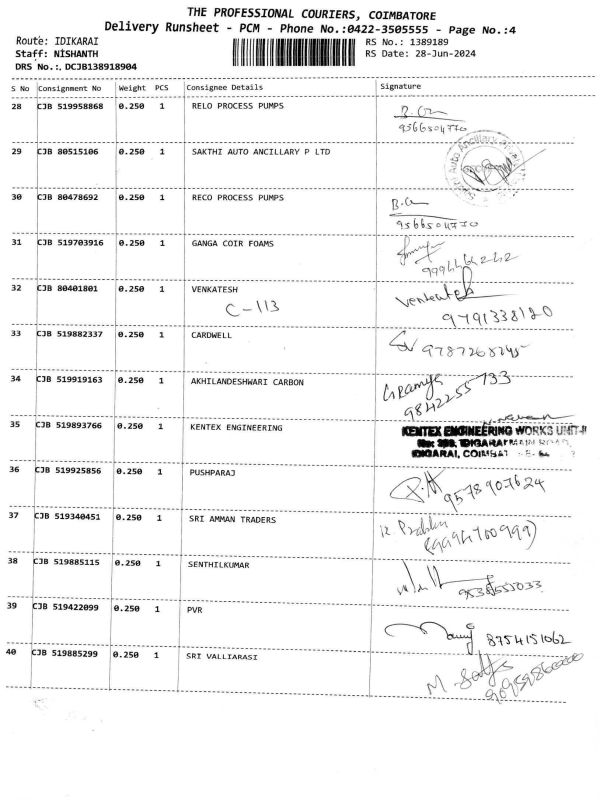 THE PROFESSIONAL COURIERS, COIMBATORE
Delivery Runsheet - PCM - Phone No.:0422-3505555 - Page No.:4
Route: IDIKARAI RS No.: 1389189
Staff: NISHANTH RS Date: 28-Jun-2024
DRS No.:. DCJB138918904
S No Consignment No Weight PCS Consignee Details Signature
28 CJB 519958868 0.250 1 RELO PROCESS PUMPS
9566504770
29 CJB 80515106 0.250 1 SAKTHI AUTO ANCILLARY P LTD
30 CJB 80478692 0.250 1 RECO PROCESS PUMPS
9566504770
31 CJB 519703916 0.250 1 GANGA COIR FOAMS
32 CJB 80401801 0.250 1 VENKATESH Venkatesh
C-113 9791338120
33 CJB 519882337 0.250 1 CARDWELL 9787268745
34 CJB 519919163 0.250 1 AKHILANDESHWARI CARBON
9842255733
35 CJB 519893766 0.250 1 KENTEX ENGINEERING KENTEX ENGINEERING WORKS UNIT-II
IDIGARAI, COIMBAT
36 CJB 519925856 0.250 1 PUSHPARAJ
9578907624
37 CJB 519340451 0.250 1 SRI AMMAN TRADERS
(9994700999)
38 CJB 519885115 0.250 1 SENTHILKUMAR
39 CJB 519422099 0.250 1 PVR
8754151062
40 CJB 519885299 0.250 1 SRI VALLIARASI